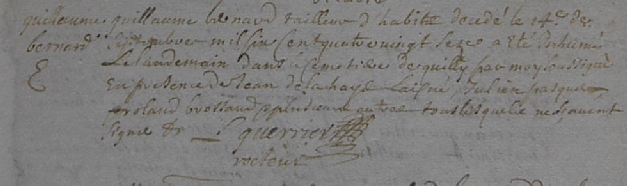 guillaume guillaume bernard tailleur d habits decedé le 14e de
bernard Septembre mil six cent quatre vingt seze a eté Inhumé
Le landemain dans le semetiere de quilly par moy soussigné
En presence de Jean de la haye Julien pasque
roland brossaud & plusieurs autres tous lesquels ne scavent
signer &c guerrier
recteur